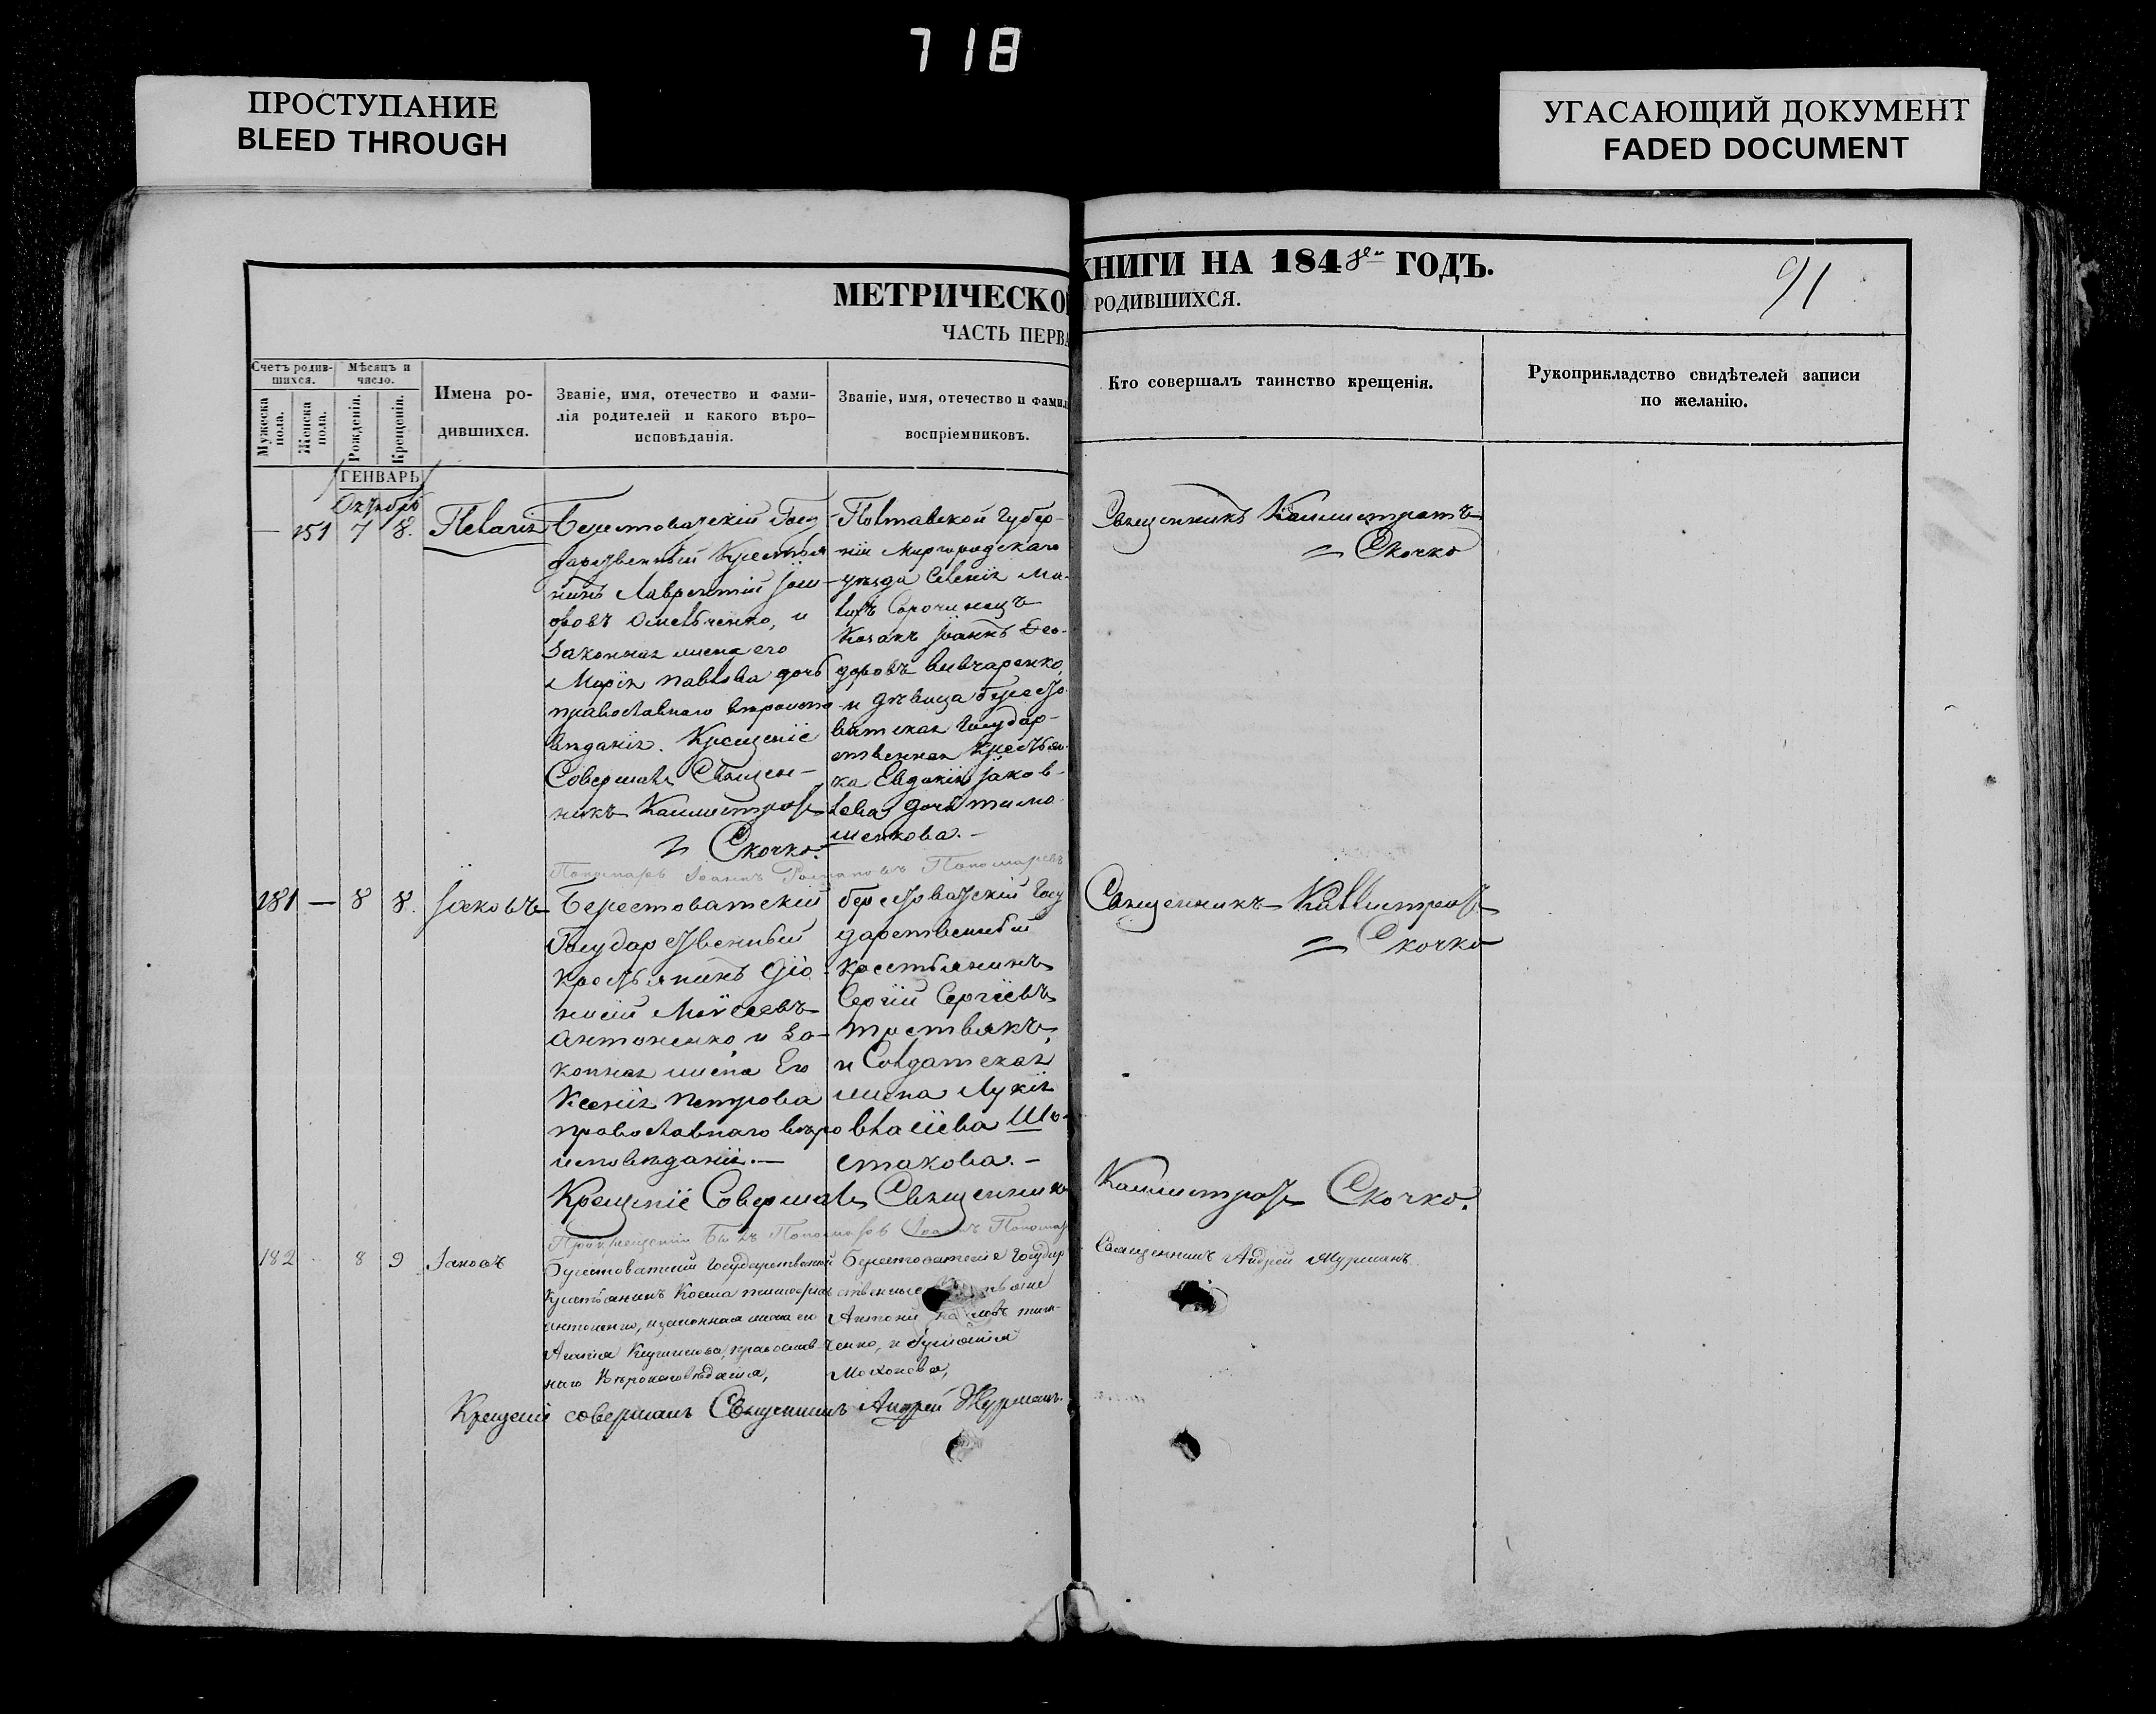 718
ПРОСТУПАНИЕ
BLEED THROUGH
УГАСАЮЩИЙ ДОКУМЕНТ
FADED DOCUMENT
МЕТРИЧЕСКО
КНИГИ НА 1848 ГОДЪ.
91
ЧАСТЬ ПЕРВА
РОДИВШИХСЯ.
Счетъ родив-
шихся.
Мужеска пола.
Женска пола.
Мѣсяцъ и
число.
Рожденія.
Крещенія.
Имена ро-
дившихся.
Званіе, имя, отечество и фами-
лія родителей и какого вѣро-
исповѣданія.
Званіе, имя, отечество и фамил
воспріемниковъ.
Кто совершалъ таинство крещенія.
Рукоприкладство свидѣтелей записи
по желанію.
ГЕНВАРЬ
Октябрь
— 151 7 8. Пелагія
Берестоватскій Госу-
дарственный Крестья
нинъ Лаврентій
Омельченко, и
Законная жена его
Марія Павлова дочь
православнаго вѣроиспо
вѣданія. Крещеніе
Совершалъ Священ-
никъ Каллистратъ
Скочко.
Полтавской Губер-
ніи Миргородскаго
уѣзда Селенія Ма-
лыхъ Сорочинецъ
Козакъ Іоаннъ Ѳео-
доровъ Вивчаренко,
и Дѣвица Бересто-
ватская Государ-
ственная Крестьян-
ка Евдокія Іаков-
лева дочь Тимо
шенкова.-
Священникъ Каллистратъ
= Скочко
Пономарь Іоаннъ Романовъ Пономаревъ
181 — 8 8. Іаковъ
Берестоватскій
Государственный
Крестьянинъ Діо
нисій Моѵсеевъ
Антоненко, и За-
конная жена Его
Ксенія Петрова
православнаго вѣро
исповѣданія.—
Берестоватскій Госу
дарственный
Крестьянинъ
Сергій Сергіевъ
Триствякъ,
и Солдатская
жена Лукія
Власіева Ше-
стакова.-
Священникъ Каллистратъ
= Скочко
Крещеніе Совершалъ Священникъ Каллистратъ Скочко.
При крещеніи былъ Пономарь Іоаннъ Понома
182 8 9 Іаковъ
Берестоватскій Государственный
Крестьянинъ Косма
Антоненко, и законная жена его
Агапія православ
наго Вѣроисповѣданія,
Берестоватскіе Государ
ственные
Антоній
енко, и
Мохонова,
Священникъ Андрей Журманъ.
Крещеніе совершалъ Священникъ Андрей Журманъ.